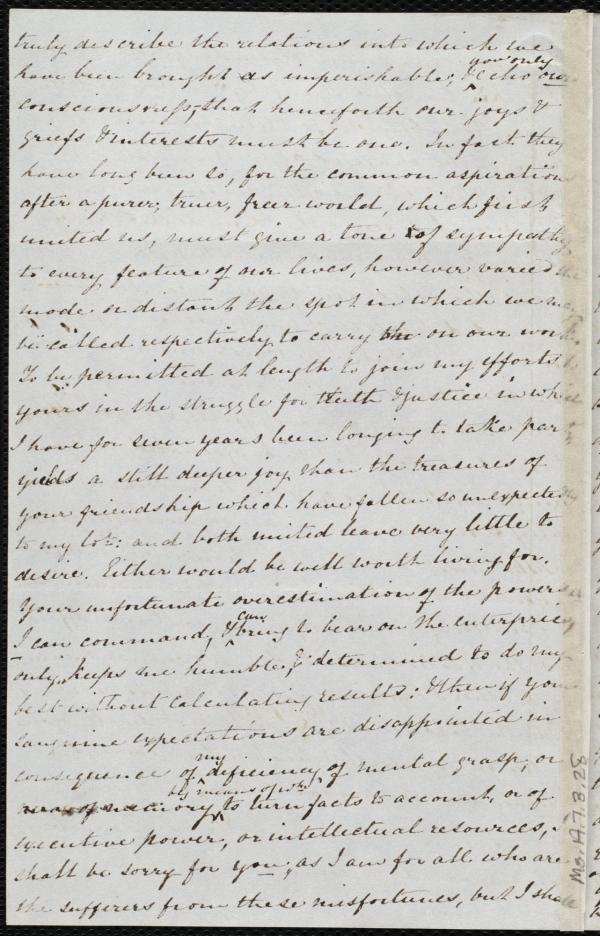 truly describe the relations into which we
have been brought as imperishable; & you only echo our
consciousness, that henceforth our joys &
griefs & interests must be one. In fact they
have long been so, for the common aspirations
after a purer, truer, freer world, which first
united us, must give a tone of sympathy
to every feature of our lives, however varied the
mode or distant the spot in which we may
be called respectively to carry on our work.
To be permitted at length to join my efforts to
yours in the struggle for truth & justice in which
I have for seven years been longing to take part
yields a still deeper joy than the treasures of
your friendship which have fallen so unexpectedly
to my lot: and both united leave very little to
desire. Either would be well worth living for.
Your unfortunate overestimation of the powers
I can command, & can bring to bear on the enterprise,
only keeps me humble, & determined to do my
best without calculating results: & then if your
sanguine expectations are disappointed in
consequence of my deficiency of mental grasp, or
of memory by means of wh. to turn facts to account, or of
executive power, or intellectual resources, I
shall be sorry for you, as I am for all who are
the sufferers from these misfortunes, but I shall
Ms. A. 7. 3. 28